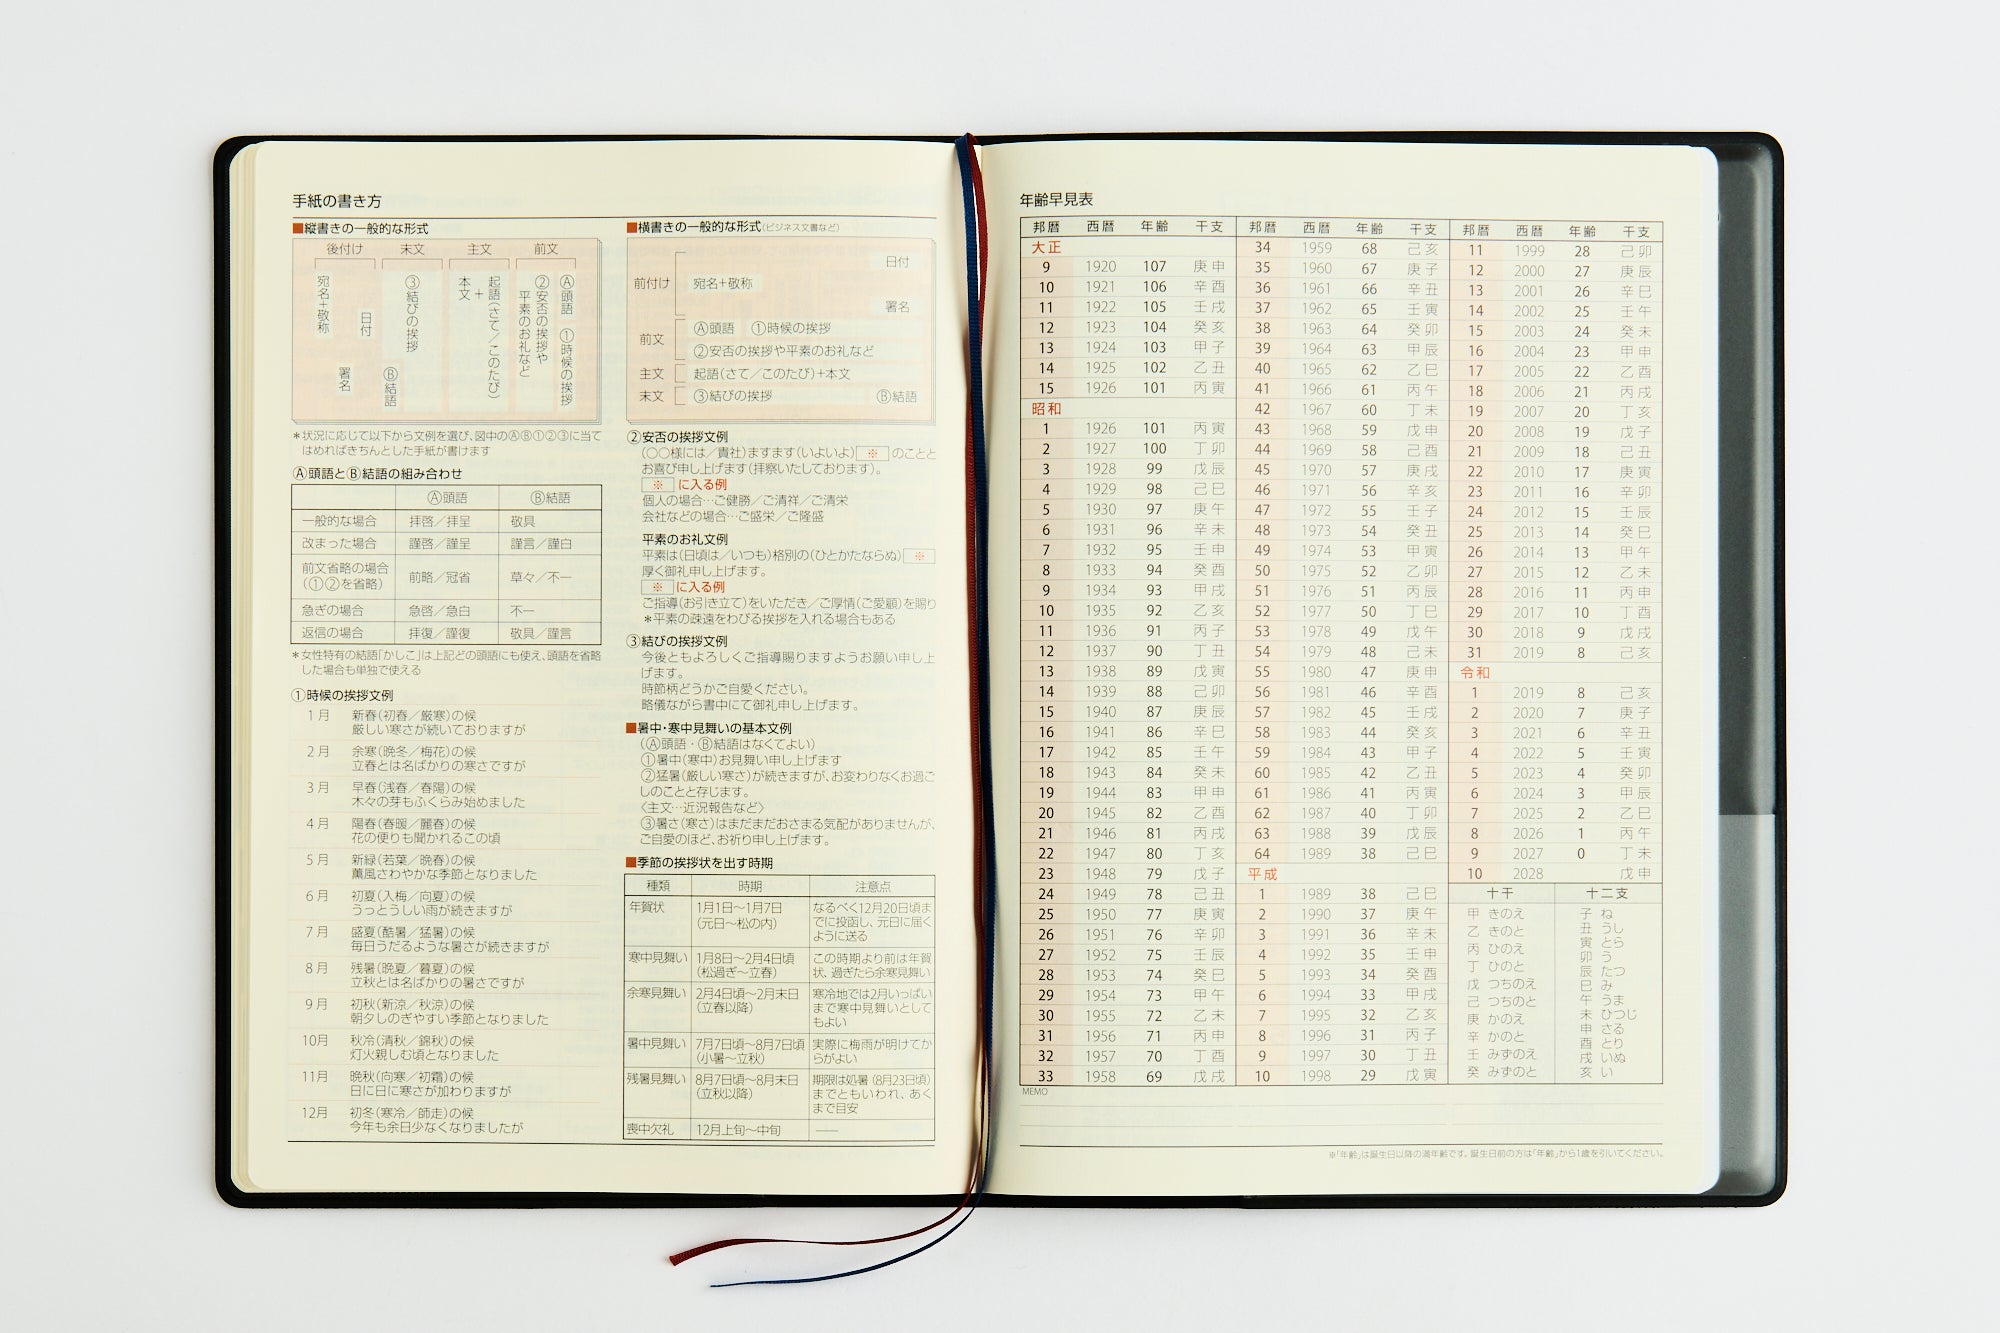 手紙の書き方
■縦書きの一般的な形式
後付け 末文 主文 前文
Ⓐ頭語 ①時候の挨拶
②安否の挨拶や
平素のお礼など
起語(さて／このたび)
+
本文
③結びの挨拶
Ⓑ結語
日付
署名
宛名+敬称
＊状況に応じて以下から文例を選び、図中のⒶⒷ①②③に当て
はめればきちんとした手紙が書けます
Ⓐ頭語とⒷ結語の組み合わせ
Ⓐ頭語 Ⓑ結語
一般的な場合 拝啓／拝呈 敬具
改まった場合 謹啓／謹呈 謹言／謹白
前文省略の場合
(①②を省略) 前略／冠省 草々／不一
急ぎの場合 急啓／急白 不一
返信の場合 拝復／謹復 敬具／謹言
＊女性特有の結語「かしこ」は上記どの頭語にも使え、頭語を省略
した場合も単独で使える
①時候の挨拶文例
1月 新春(初春／厳寒)の候
厳しい寒さが続いておりますが
2月 余寒(晩冬／梅花)の候
立春とは名ばかりの寒さですが
3月 早春(浅春／春陽)の候
木々の芽もふくらみ始めました
4月 陽春(春暖／麗春)の候
花の便りも聞かれるこの頃
5月 新緑(若葉／晩春)の候
薫風さわやかな季節となりました
6月 初夏(入梅／向夏)の候
うっとうしい雨が続きますが
7月 盛夏(酷暑／猛暑)の候
毎日うだるような暑さが続きますが
8月 残暑(晩夏／暮夏)の候
立秋とは名ばかりの暑さですが
9月 初秋(新涼／秋涼)の候
朝夕しのぎやすい季節となりました
10月 秋冷(清秋／錦秋)の候
灯火親しむ頃となりました
11月 晩秋(向寒／初霜)の候
日に日に寒さが加わりますが
12月 初冬(寒冷／師走)の候
今年も余日少なくなりましたが
■横書きの一般的な形式(ビジネス文書など)
日付
前付け 宛名+敬称
署名
前文 Ⓐ頭語 ①時候の挨拶
②安否の挨拶や平素のお礼など
主文 起語(さて／このたび)+本文
末文 ③結びの挨拶 Ⓑ結語
②安否の挨拶文例
(○○様には／貴社)ますます(いよいよ) ※ のことと
お喜び申し上げます(拝察いたしております)。
※ に入る例
個人の場合…ご健勝／ご清祥／ご清栄
会社などの場合…ご盛栄／ご隆盛
平素のお礼文例
平素は(日頃は／いつも)格別の(ひとかたならぬ) ※
厚く御礼申し上げます。
※ に入る例
ご指導(お引き立て)をいただき／ご厚情(ご愛顧)を賜り
＊平素の疎遠をわびる挨拶を入れる場合もある
③結びの挨拶文例
今後ともよろしくご指導賜りますようお願い申し上
げます。
時節柄どうかご自愛ください。
略儀ながら書中にて御礼申し上げます。
■暑中・寒中見舞いの基本文例
(Ⓐ頭語・Ⓑ結語はなくてよい)
①暑中(寒中)お見舞い申し上げます
②猛暑(厳しい寒さ)が続きますが、お変わりなくお過ご
しのことと存じます。
〈主文…近況報告など〉
③暑さ(寒さ)はまだまだおさまる気配がありませんが、
ご自愛のほど、お祈り申し上げます。
■季節の挨拶状を出す時期
種類 時期 注意点
年賀状 1月1日〜1月7日 なるべく12月20日頃ま
(元日〜松の内) でに投函し、元日に届く
ように送る
寒中見舞い 1月8日〜2月4日頃 この時期より前は年賀
(松過ぎ〜立春) 状、過ぎたら余寒見舞い
余寒見舞い 2月4日頃〜2月末日 寒冷地では2月いっぱい
(立春以降) まで寒中見舞いとして
もよい
暑中見舞い 7月7日頃〜8月7日頃 実際に梅雨が明けてか
(小暑〜立秋) らがよい
残暑見舞い 8月7日頃〜8月末日 期限は処暑(8月23日頃)
(立秋以降) までともいわれ、あく
まで目安
喪中欠礼 12月上旬〜中旬 ——
年齢早見表
邦暦 西暦 年齢 干支
大正
9 1920 107 庚申
10 1921 106 辛酉
11 1922 105 壬戌
12 1923 104 癸亥
13 1924 103 甲子
14 1925 102 乙丑
15 1926 101 丙寅
昭和
1 1926 101 丙寅
2 1927 100 丁卯
3 1928 99 戊辰
4 1929 98 己巳
5 1930 97 庚午
6 1931 96 辛未
7 1932 95 壬申
8 1933 94 癸酉
9 1934 93 甲戌
10 1935 92 乙亥
11 1936 91 丙子
12 1937 90 丁丑
13 1938 89 戊寅
14 1939 88 己卯
15 1940 87 庚辰
16 1941 86 辛巳
17 1942 85 壬午
18 1943 84 癸未
19 1944 83 甲申
20 1945 82 乙酉
21 1946 81 丙戌
22 1947 80 丁亥
23 1948 79 戊子
24 1949 78 己丑
25 1950 77 庚寅
26 1951 76 辛卯
27 1952 75 壬辰
28 1953 74 癸巳
29 1954 73 甲午
30 1955 72 乙未
31 1956 71 丙申
32 1957 70 丁酉
33 1958 69 戊戌
邦暦 西暦 年齢 干支
34 1959 68 己亥
35 1960 67 庚子
36 1961 66 辛丑
37 1962 65 壬寅
38 1963 64 癸卯
39 1964 63 甲辰
40 1965 62 乙巳
41 1966 61 丙午
42 1967 60 丁未
43 1968 59 戊申
44 1969 58 己酉
45 1970 57 庚戌
46 1971 56 辛亥
47 1972 55 壬子
48 1973 54 癸丑
49 1974 53 甲寅
50 1975 52 乙卯
51 1976 51 丙辰
52 1977 50 丁巳
53 1978 49 戊午
54 1979 48 己未
55 1980 47 庚申
56 1981 46 辛酉
57 1982 45 壬戌
58 1983 44 癸亥
59 1984 43 甲子
60 1985 42 乙丑
61 1986 41 丙寅
62 1987 40 丁卯
63 1988 39 戊辰
64 1989 38 己巳
平成
1 1989 38 己巳
2 1990 37 庚午
3 1991 36 辛未
4 1992 35 壬申
5 1993 34 癸酉
6 1994 33 甲戌
7 1995 32 乙亥
8 1996 31 丙子
9 1997 30 丁丑
10 1998 29 戊寅
邦暦 西暦 年齢 干支
11 1999 28 己卯
12 2000 27 庚辰
13 2001 26 辛巳
14 2002 25 壬午
15 2003 24 癸未
16 2004 23 甲申
17 2005 22 乙酉
18 2006 21 丙戌
19 2007 20 丁亥
20 2008 19 戊子
21 2009 18 己丑
22 2010 17 庚寅
23 2011 16 辛卯
24 2012 15 壬辰
25 2013 14 癸巳
26 2014 13 甲午
27 2015 12 乙未
28 2016 11 丙申
29 2017 10 丁酉
30 2018 9 戊戌
31 2019 8 己亥
令和
1 2019 8 己亥
2 2020 7 庚子
3 2021 6 辛丑
4 2022 5 壬寅
5 2023 4 癸卯
6 2024 3 甲辰
7 2025 2 乙巳
8 2026 1 丙午
9 2027 0 丁未
10 2028 戊申
十干
甲 きのえ
乙 きのと
丙 ひのえ
丁 ひのと
戊 つちのえ
己 つちのと
庚 かのえ
辛 かのと
壬 みずのえ
癸 みずのと
十二支
子 ね
丑 うし
寅 とら
卯 う
辰 たつ
巳 み
午 うま
未 ひつじ
申 さる
酉 とり
戌 いぬ
亥 い
MEMO
※「年齢」は誕生日以降の満年齢です。誕生日前の方は「年齢」から1歳を引いてください。